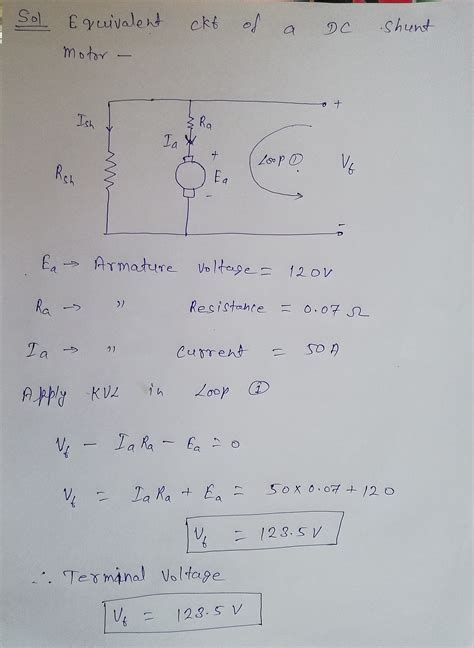 Sol Equivalent ckt of a DC shunt
Motor —
+
Ish
Ra
Ia
+
Loop ①
Vt
Rsh
Ea
-
-
Ea → Armature Voltage = 120V
Ra → " Resistance = 0.07 Ω
Ia → " Current = 50A
Apply KVL in Loop ①
Vt - IaRa - Ea = 0
Vt = IaRa + Ea = 50×0.07+120
Vt = 123.5 V
∴ Terminal Voltage
Vt = 123.5 V